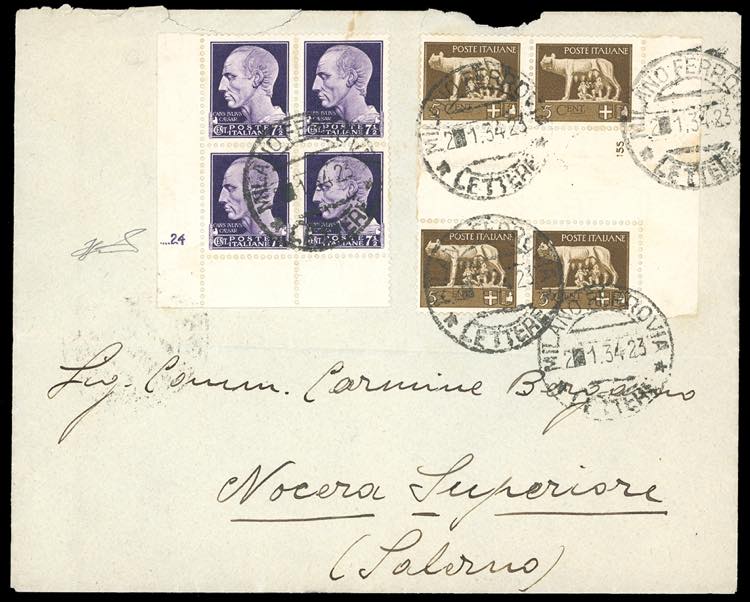 CAIVS IVLIVS CAESAR
CENT. POSTE ITALIANE 7½
CAIVS IVLIVS CAESAR
CENT. POSTE ITALIANE 7½
CAIVS IVLIVS CAESAR
CENT. POSTE ITALIANE 7½
CENT. POSTE ITALIANE 7½
POSTE ITALIANE
5 CENT.
POSTE ITALIANE
5 CENT.
155
POSTE ITALIANE
5
POSTE ITALIANE
5
....24
MILANO FERROVIA
1.34 23
LETTERE
MILANO FERROVIA
2 1.34 23
* LETTERE *
MILANO FERROVIA
2 1.34 23
* LETTERE *
FERROVIA
23
* LETTERE
MILANO FERROVIA
2 1.34 23
* LETTERE *
Sig. Comm. Carmine Bergamo
Nocera Superiore
(Salerno)